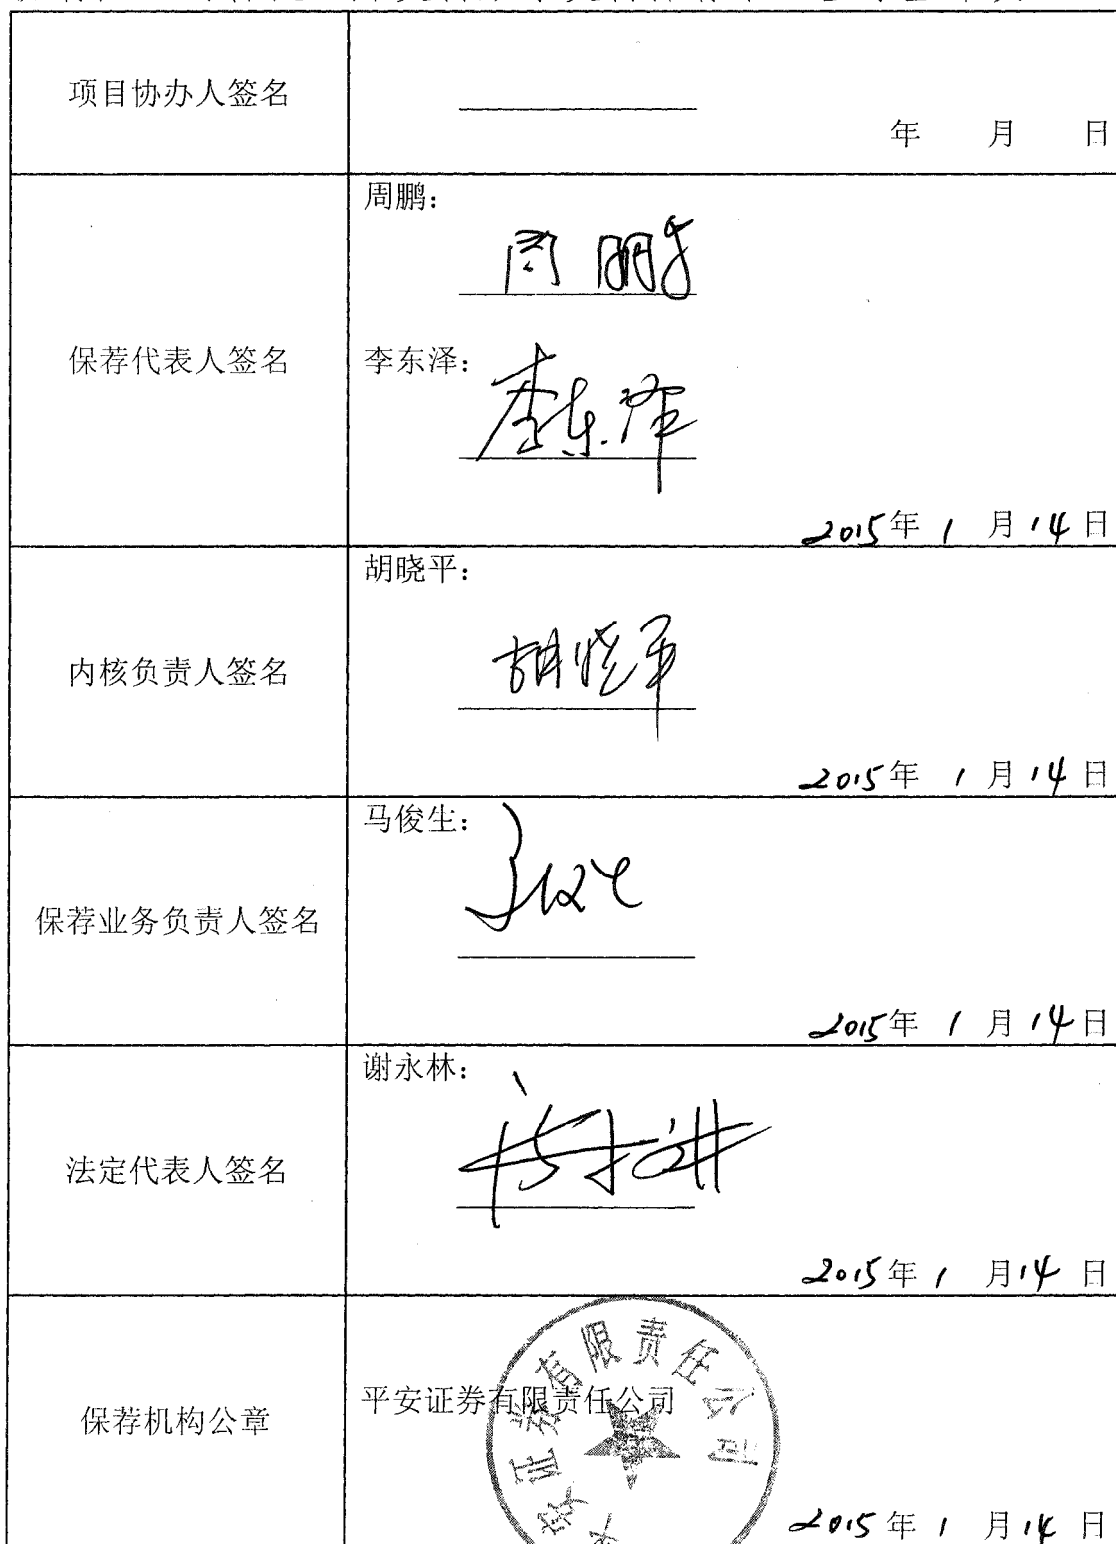 项目协办人签名
年 月 日
保荐代表人签名
周鹏：
周鹏
李东泽：
李东泽
2015年 1 月 14 日
内核负责人签名
胡晓平：
胡晓平
2015年 1 月 14 日
保荐业务负责人签名
马俊生：
马俊生
2015年 1 月 14 日
法定代表人签名
谢永林：
2015年 1 月 14 日
保荐机构公章
平安证券有限责任公司
平安证券有限责任公司
2015年 1 月 14 日